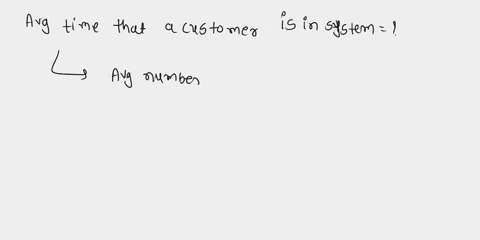 Avg time that a customer is in system = ?
Avg number